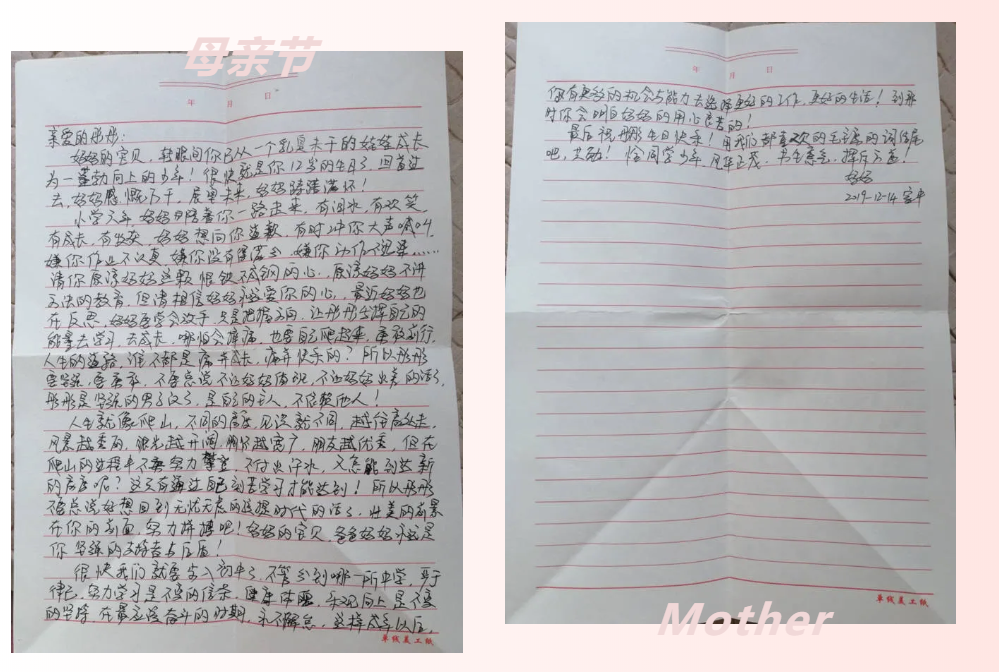 母亲节
年 月 日
亲爱的彤彤：
妈妈的宝贝，转眼间你已从一个乳臭未干的娃娃成长
为一蓬勃向上的少年！很快就是你12岁的生日了，回首过
去，妈妈感慨万千，展望未来，妈妈踌躇满怀！
小学六年，妈妈陪着你一路走来，有泪水，有欢笑，
有成长，有收获，妈妈想向你道歉，有时冲你大声吼叫，
嫌你作业不认真，嫌你没有满分，嫌你动作不迅速……
请你原谅妈妈这颗恨铁不成钢的心，原谅妈妈不讲
方法的教育，但请相信妈妈永远爱你的心，最近妈妈也
在反思，妈妈要学会放手，只是把握方向，让彤彤发挥自己的
能拿去学习，去成长，哪怕会摔痛，也要自己爬起来，勇敢前行，
人生的道路，谁不都是痛并成长，痛并快乐的？所以彤彤
要坚强，要勇敢，不要总说不让妈妈伤心，不让妈妈失望的话了，
彤彤是坚强的男子汉了，是自己的主人，不依赖他人！
人生就像爬山，不同的高度，见识就不同，越往高处走，
风景越秀丽，眼光越开阔，胸怀越宽广，朋友越优秀，但在
爬山的过程中不努力攀登，不付出汗水，又怎能到达新
的高度呢？这只有通过自己刻苦学习才能达到！所以彤彤
不要总说好想回到无忧无虑的时代的话了，壮美的前景
在你的前面，努力拼搏吧！妈妈的宝贝，爸爸妈妈永远是
你坚强的支持者与后盾！
很快我们就要步入初中了，不管分到哪一所中学，严于
律己，努力学习是不变的信条，健康体魄，乐观向上是不变
的坚持，在最应该奋斗的时期，永不懈怠，这样成年以后，
单线美工纸
年 月 日
你有更多的机会与能力去选择更好的工作，更好的生活！到那
时你会明白妈妈的用心良苦的！
最后祝彤彤生日快乐！用我们都喜欢的毛主席的词结尾
吧，共勉！恰同学少年，风华正茂，书生意气，挥斥方遒！
妈妈
2019-12-14
单线美工纸
Mother